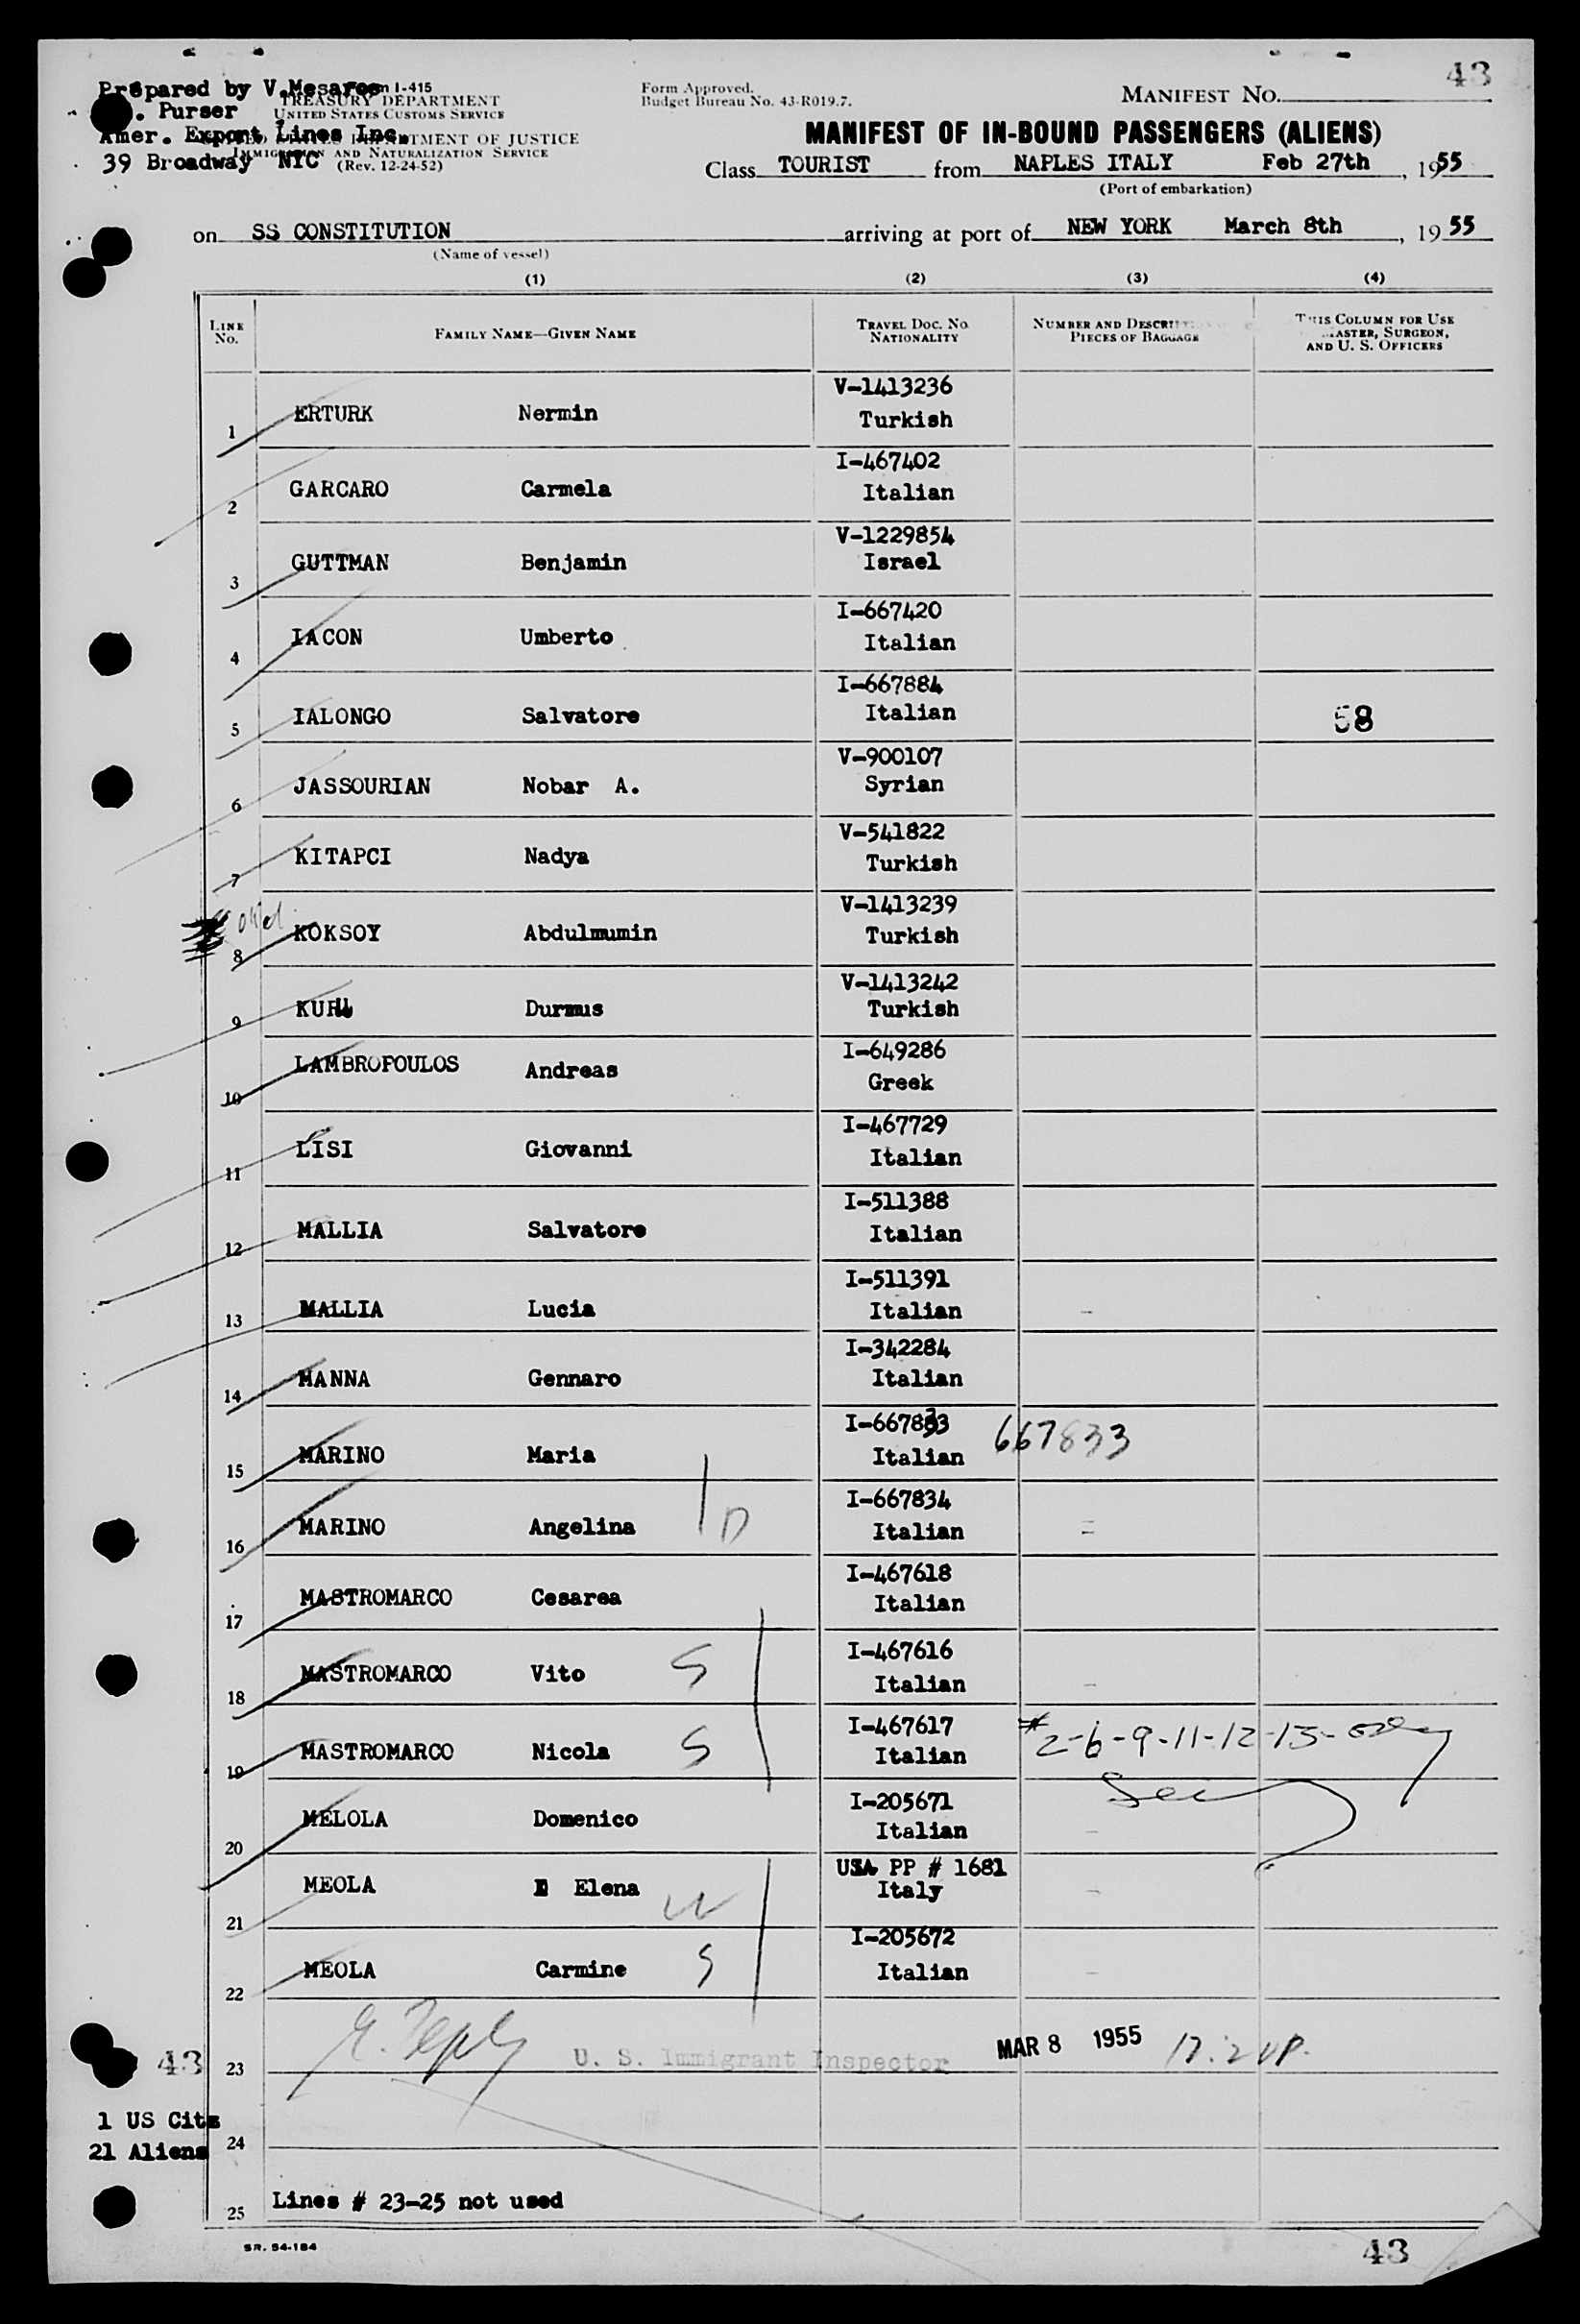 43
Prepared by V.Mesaros
Form I-415
Form Approved.
MANIFEST NO.
TREASURY DEPARTMENT
Budget Bureau No. 43-R019.7.
. Purser
UNITED STATES CUSTOMS SERVICE
Amer. Export Lines Inc.
UNITED STATES DEPARTMENT OF JUSTICE
MANIFEST OF IN-BOUND PASSENGERS (ALIENS)
IMMIGRATION AND NATURALIZATION SERVICE
39 Broadway NYC
(Rev. 12-24-52)
Class TOURIST from NAPLES ITALY Feb 27th, 1955
(Port of embarkation)
on SS CONSTITUTION arriving at port of NEW YORK March 8th, 1955
(Name of vessel)
(1) (2) (3) (4)
LINE No.
FAMILY NAME—GIVEN NAME
TRAVEL DOC. NO.
NATIONALITY
NUMBER AND
PIECES OF BAGGAGE
THIS COLUMN FOR USE
MASTER, SURGEON,
AND U. S. OFFICERS
V-1413236
1 ERTURK Nermin Turkish
I-467402
2 GARCARO Carmela Italian
V-1229854
3 GUTTMAN Benjamin Israel
I-667420
4 IACON Umberto Italian
I-667884
5 IALONGO Salvatore Italian 58
V-900107
6 JASSOURIAN Nobar A. Syrian
V-541822
7 KITAPCI Nadya Turkish
V-1413239
8 KOKSOY Abdulmumin Turkish
V-1413242
9 KURU Durmus Turkish
I-649286
10 LAMBROPOULOS Andreas Greek
I-467729
11 LISI Giovanni Italian
I-511388
12 MALLIA Salvatore Italian
I-511391
13 MALLIA Lucia Italian
I-342284
14 MANNA Gennaro Italian
I-667833 667833
15 MARINO Maria Italian
I-667834
16 MARINO Angelina D Italian
I-467618
17 MASTROMARCO Cesarea Italian
I-467616
18 MASTROMARCO Vito S Italian
I-467617
19 MASTROMARCO Nicola S Italian
#2-6-9-11-12-13-
I-205671
20 MELOLA Domenico Italian
USA PP # 1681
21 MEOLA E Elena W Italy
I-205672
22 MEOLA Carmine S Italian
U. S. Immigrant Inspector
MAR 8 1955
43
23
1 US Citz
21 Aliens
24
25 Lines # 23-25 not used
SR. 54-184
43